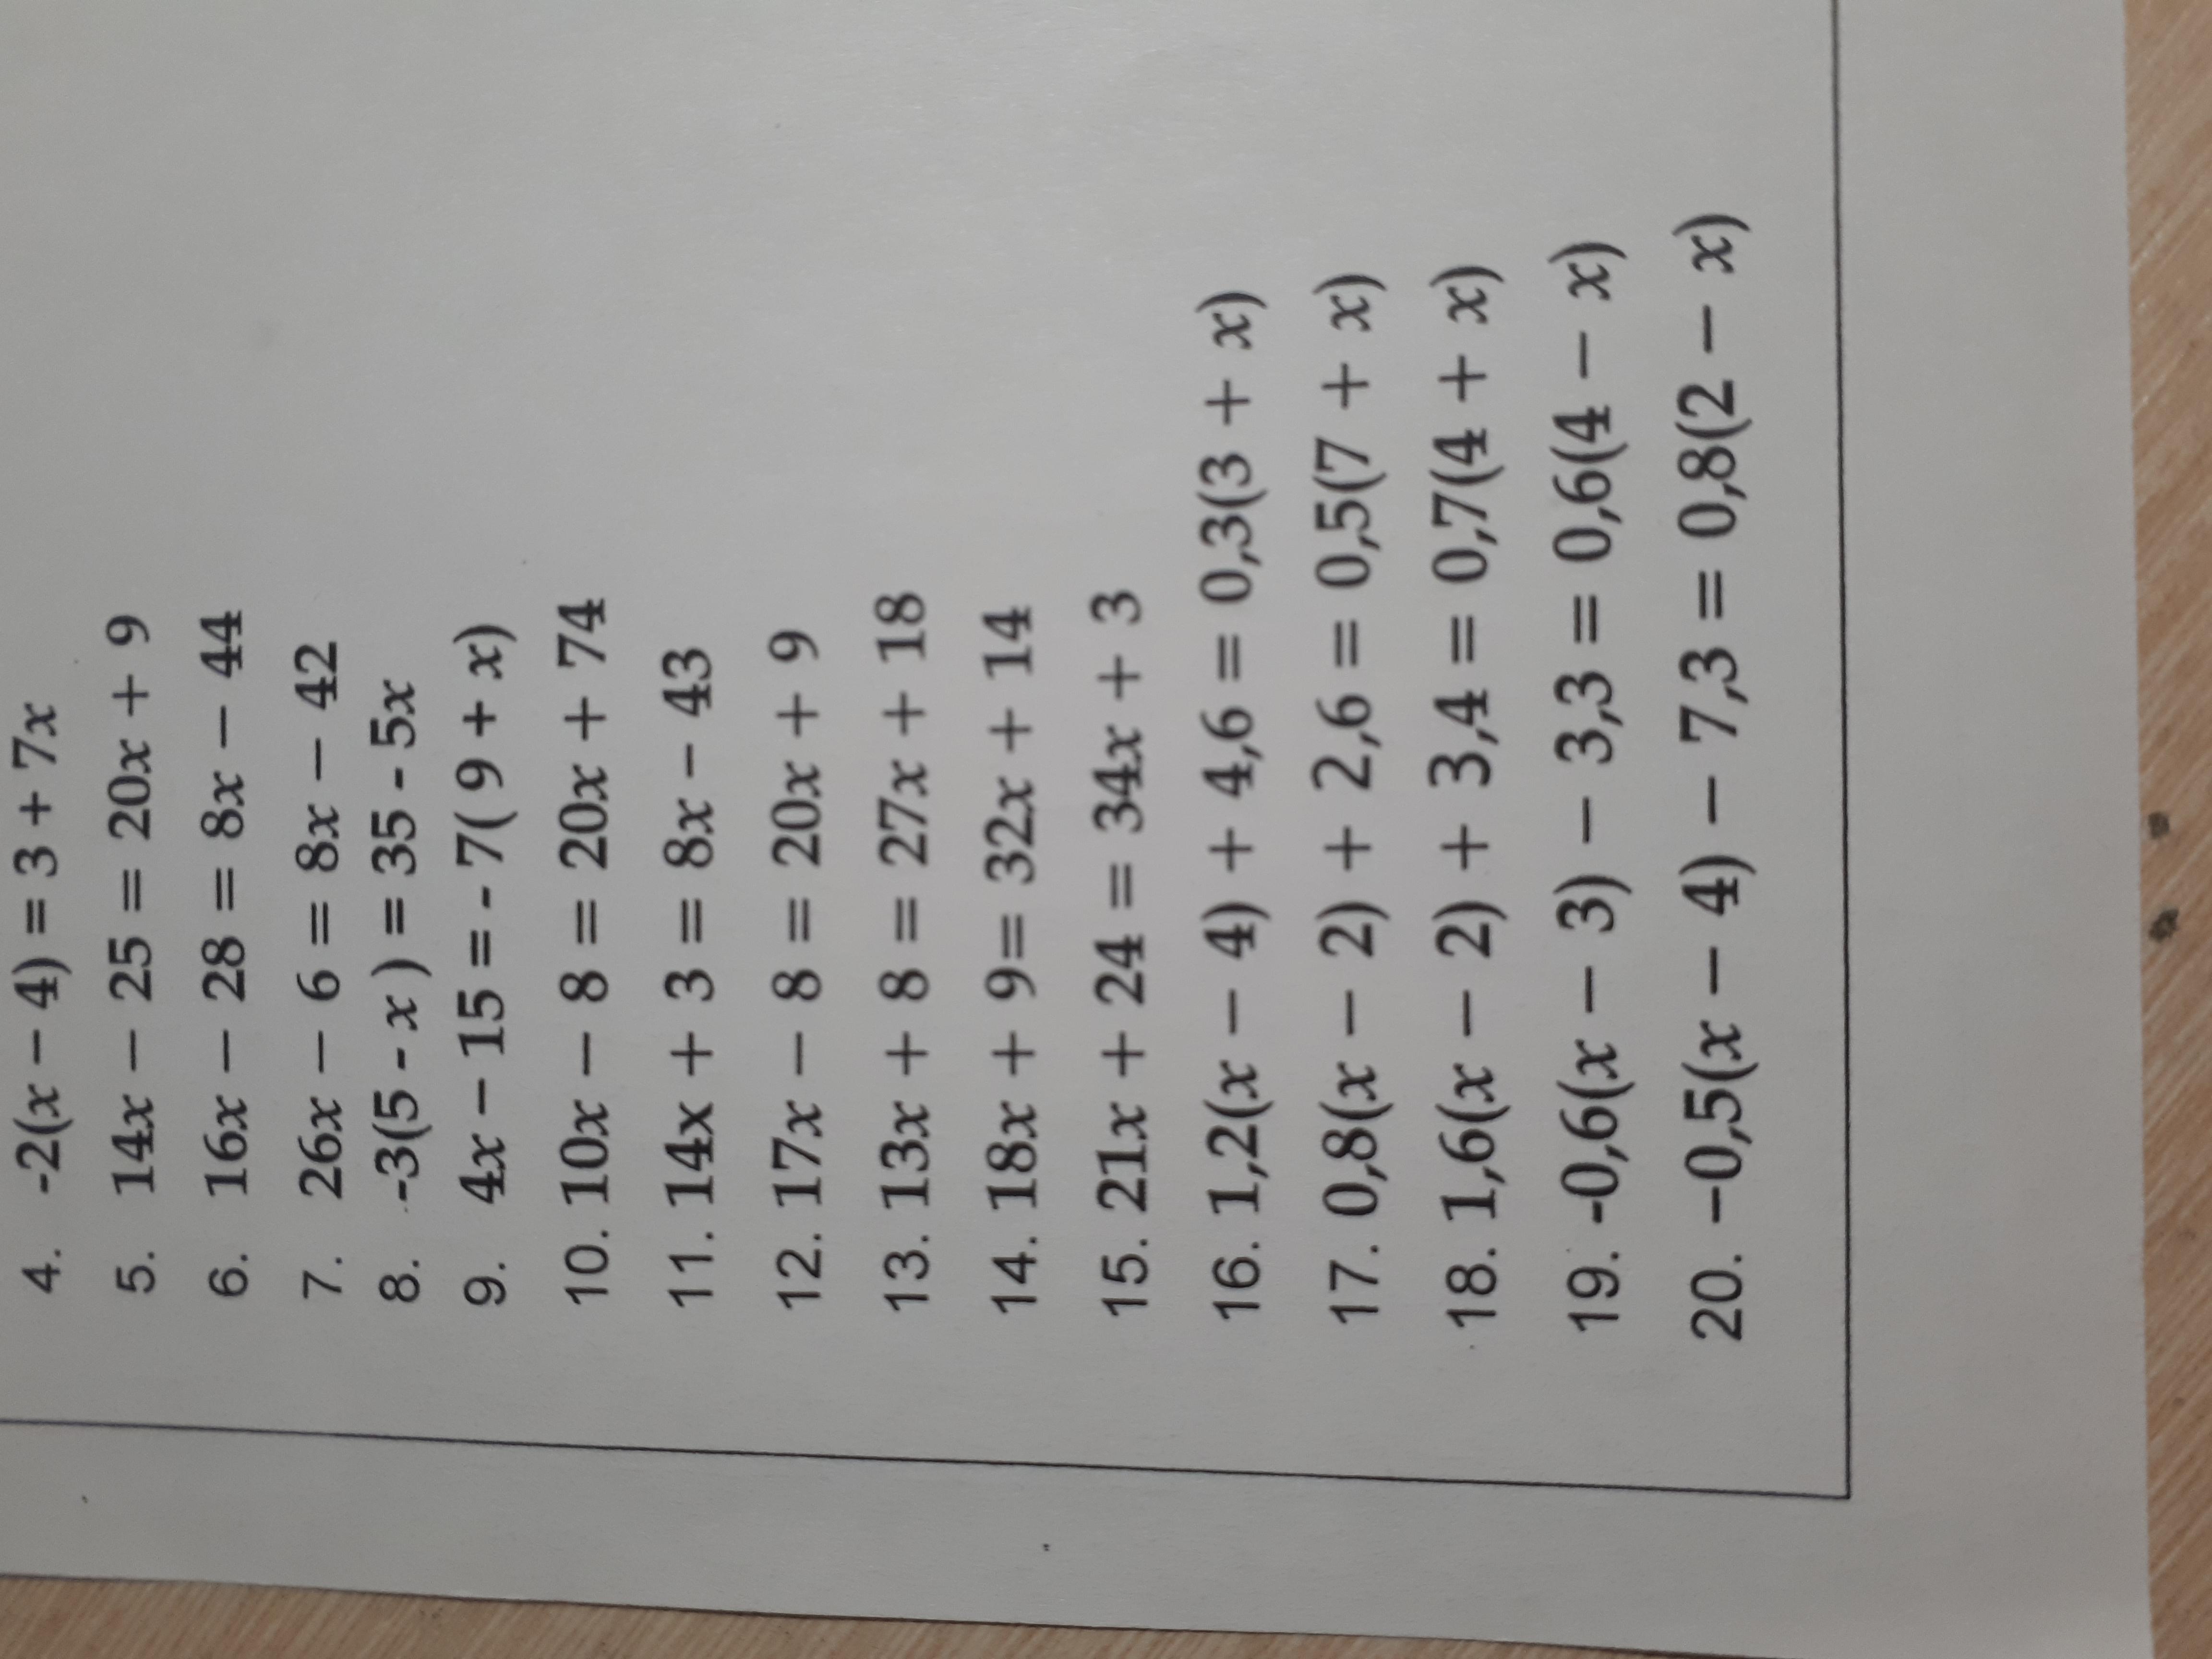 4. -2(x – 4) = 3 + 7x
5. 14x − 25 = 20x + 9
6. 16x − 28 = 8x − 44
7. 26x − 6 = 8x − 42
8. -3(5 - x ) = 35 - 5x
9. 4x – 15 = - 7( 9 + x)
10. 10x − 8 = 20x + 74
11. 14x + 3 = 8x − 43
12. 17x − 8 = 20x + 9
13. 13x + 8 = 27x + 18
14. 18x + 9= 32x + 14
15. 21x + 24 = 34x + 3
16. 1,2(x − 4) + 4,6 = 0,3(3 + x)
17. 0,8(x − 2) + 2,6 = 0,5(7 + x)
18. 1,6(x − 2) + 3,4 = 0,7(4 + x)
19. -0,6(x − 3) − 3,3 = 0,6(4 − x)
20. −0,5(x − 4) − 7,3 = 0,8(2 − x)